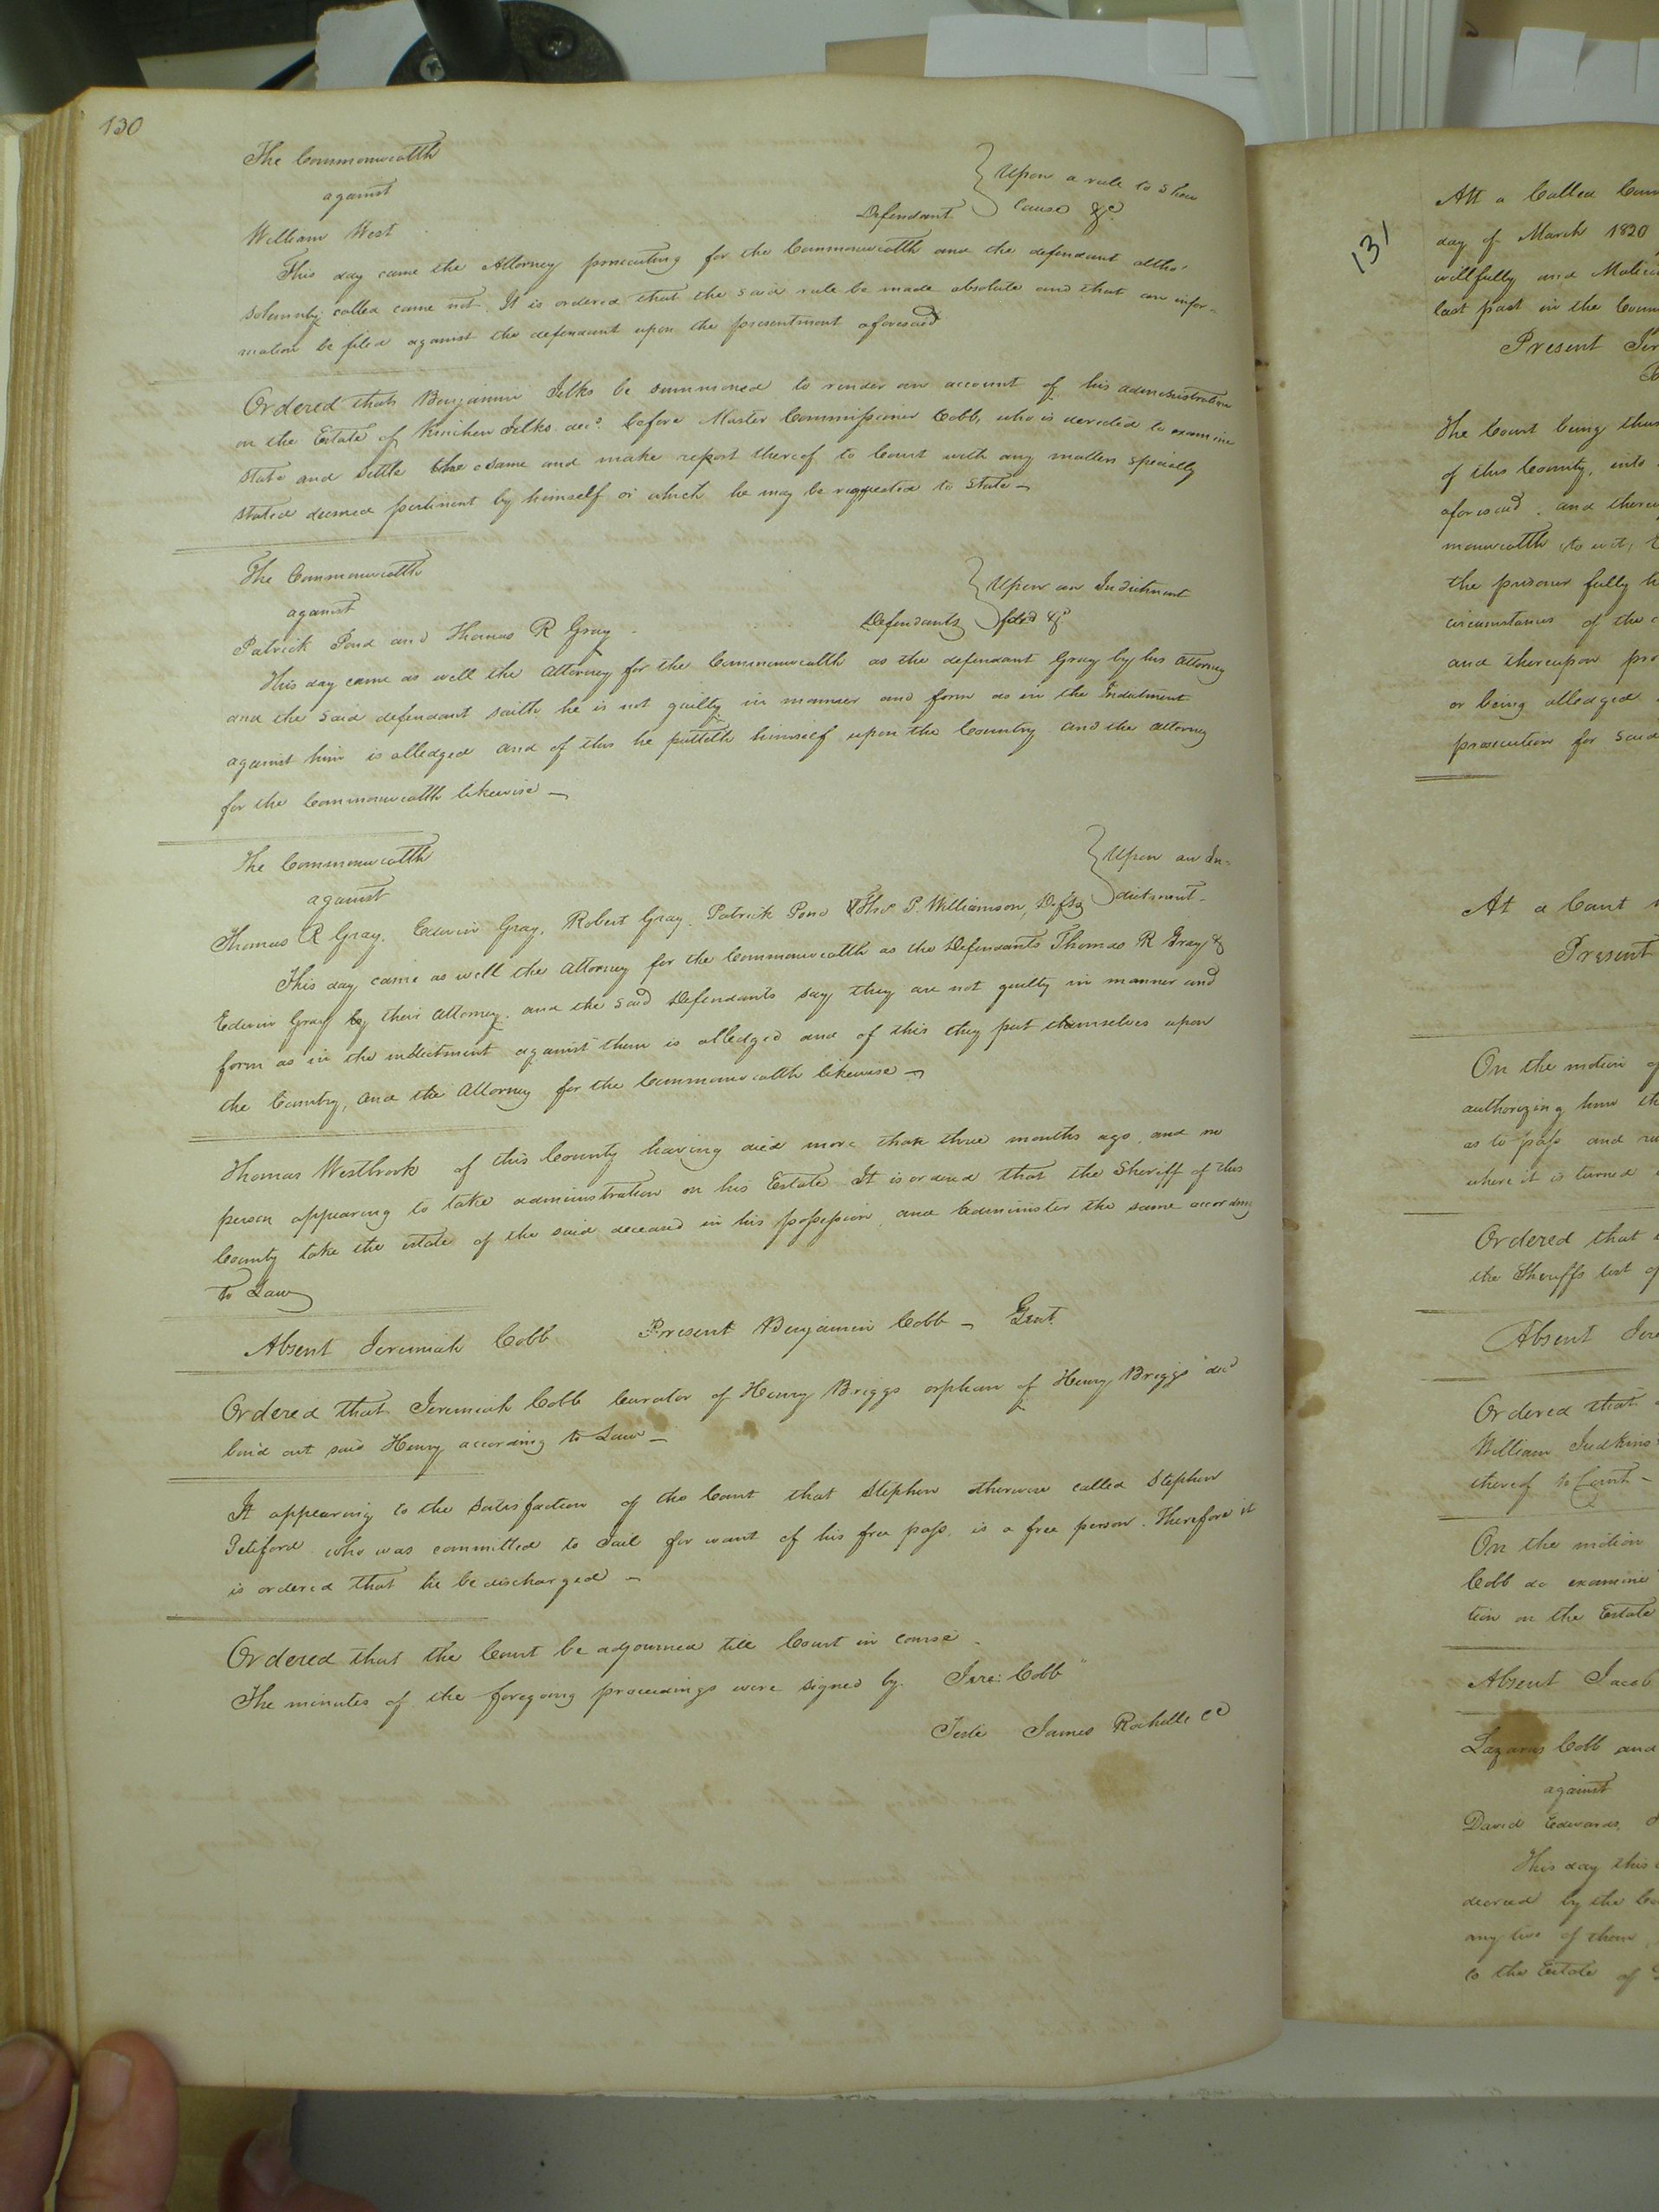 130
The Commonwealth
against
William West Defendant
Upon a rule to shew
Cause &c
This day came the Attorney prosecuting for the Commonwealth and the defendant altho'
solemnly called came not. It is ordered that the said rule be made absolute and that an infor=
mation be filed against the defendant upon the presentment aforesaid
Ordered that Benjamin Jelks be summoned to render an account of his administration
on the Estate of Kinchen Jelks decd. before Master Commissioner Cobb, who is directed to examine
state and settle the same and make report thereof to Court with any matters specially
stated deemed pertinent by himself or which he may be requested to state
The Commonwealth
against
Patrick Pond and Thomas R Gray Defendants
Upon an Indictment
for &c
This day came as well the Attorney for the Commonwealth as the defendant Gray by his attorney
and the said defendant saith he is not guilty in manner and form as in the Indictment
against him is alledged and of this he putteth himself upon the Country and the attorney
for the Commonwealth likewise
The Commonwealth
against
Thomas R Gray, Edwin Gray, Robert Gray, Patrick Pond & Thos P. Williamson, Defts
Upon an In=
dictment.
This day came as well the attorney for the Commonwealth as the Defendants Thomas R Gray &
Edwin Gray by their attorney. and the said Defendants say they are not guilty in manner and
form as in the indictment against them is alledged and of this they put themselves upon
the Country, and the Attorney for the Commonwealth likewise
Thomas Westbrook of this County having died more than three months ago, and no
person appearing to take administration on his Estate It is ordered that the Sheriff of this
County take the estate of the said deceased in his possession, and administer the same according
to Law
Absent Jeremiah Cobb Present Benjamin Cobb - Gent.
Ordered that Jeremiah Cobb Curator of Henry Briggs orphan of Henry Briggs decd
bind out said Henry according to Law
It appearing to the satisfaction of the Court that Stephen otherwise called Stephen
Peteford who was committed to Jail for want of his free pass, is a free person. Therefore it
is ordered that he be discharged
Ordered that the Court be adjourned till Court in course.
The minutes of the foregoing proceedings were signed by Jere: Cobb
Teste James Rochelle CC
131
Att a Called Cour
day of March 1820
willfully and Malici
last past in the Coun
Present Jer
The Court being thus
of this County, into
aforesaid, and thereu
monwealth, to wit,
the prisoner fully h
circumstances of the c
and thereupon pro
or being alledged
prosecution for said
At a Court
Present
On the motion of
authorizing him
as to pass and
where it is turned
Ordered that
the Sheriffs list of
Absent Jere
Ordered that
William Judkins
thereof to Court
On the motion
Cobb do examine
tion on the Estate
Absent Jacob
Lazarus Cobb and
against
David Edwards,
This day this
decreed by the Co
any two of them
to the Estate of